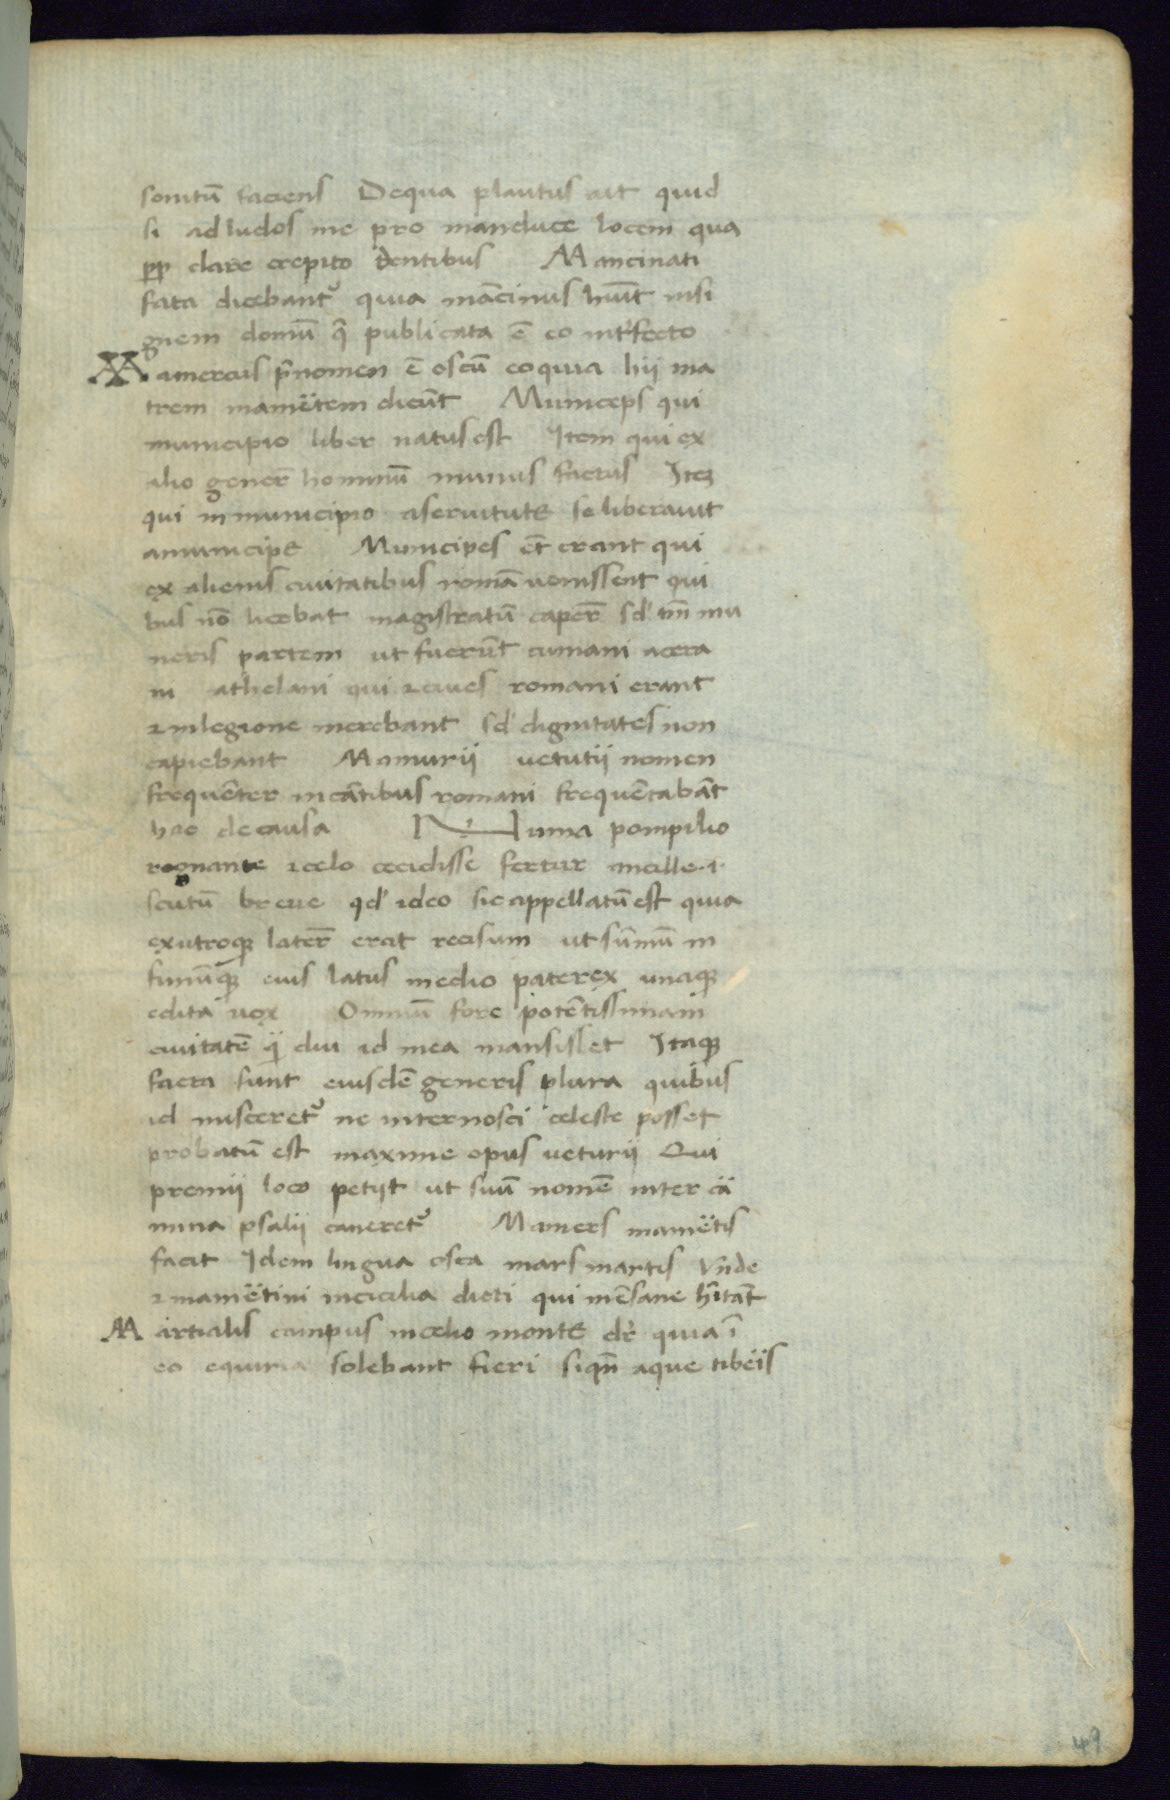 sonitū faciens Dequa plautus ait quid
si ad ludos me pro manduce locem qua
pp clare crepito dentibus Mancinati
fata dicebant᷒ quia mācinus huīt insi
gnem domū q̄ publicata ē eo int̕fecto
Mamercus p̄nomen ē oscū eo quia hij ma
trem mam̄etem dicūt Municeps qui
municipio liber natus est Item qui ex
alio gener̄ hominū munus factus Iteʒ
qui in municipio aseruitute se liberauit
amunicipe Municipes et̄ erant qui
ex alienis ciuitatibus romā uenissent qui
bus nō licebat magistratū caper̄ sd' tm̄ mu
neris partem ut fuerūt cumani acera
ni athelani qui ⁊ ciues romani erant
⁊ inlegione merebant sd' dignitates non
capiebant Mamurij uetutij nomen
frequēter incātibus romani frequētabāt
hac decausa Numa pompilio
regnante ecelo cecidisse fertur ancille .i.
scutū breue qd' ideo sic appellatū est quia
ex utroqꝫ later̄ erat recisum ut sūmū in
fimūqꝫ eius latus medio paterex unaqꝫ
edita uox Omniū fore potētissimam
ciuitatē q̈ diu id mea mansisset Itaqꝫ
facta sunt eiusdē generis plura quibus
id misceret᷒ ne internosci celeste posset
probatū est maxime opus ueturij Qui
premij loco petijt ut suū nomē inter cā
mina psalij caneret᷒ Mamers mam̄etis
facit Idem lingua osca mars martis Vn̄de
⁊ mam̄etini incicilia dicti qui mēsane hītāt
Martialis campus incelio monte dr̄ quia ī
eo equiria solebant fieri siqn̄ aque tiberis
49